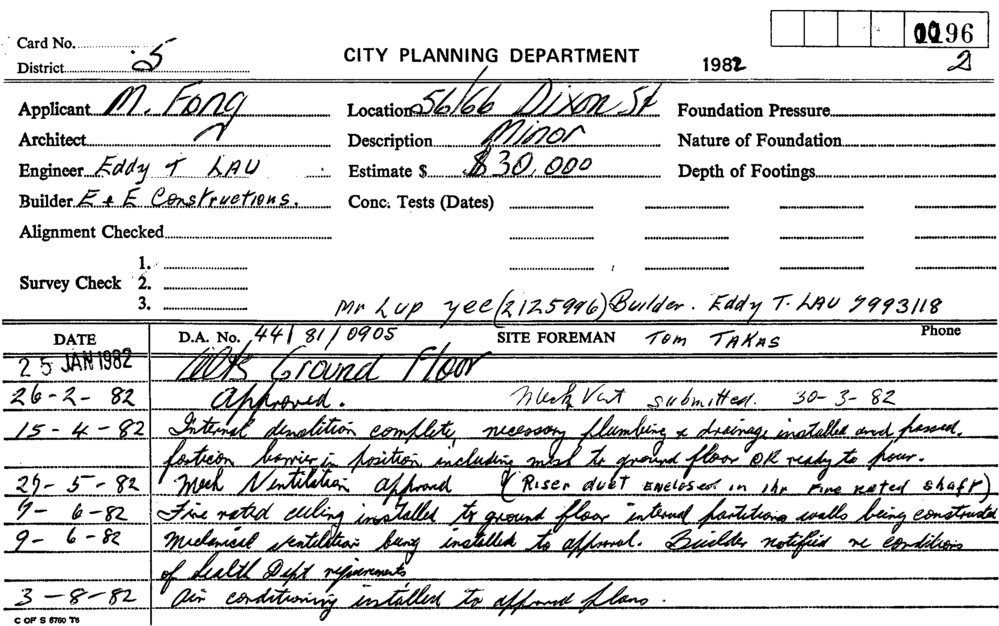 0096
Card No.
District 5
CITY PLANNING DEPARTMENT
1982
2
Applicant M. Fong
Location 56/66 Dixon St
Foundation Pressure
Architect
Description Minor
Nature of Foundation
Engineer Eddy T LAU
Estimate $ $30,000
Depth of Footings
Builder E & E Constructions.
Conc. Tests (Dates)
Alignment Checked
Survey Check
1.
2.
3.
Mr Lup yee (2125996) Builder. Eddy T. LAU 7993118
DATE
D.A. No. 44/81/0905
SITE FOREMAN Tom TAKAS
Phone
25 JAN 1982
Ground Floor
26-2-82 Approved. Mech Vent submitted. 30-3-82
15-4-82 Internal demolition complete, necessary plumbing & drainage installed and passed.
barrier in position including mesh to ground floor OK ready to pour.
29-5-82 Mech Ventilation approved (Riser duct enclosed in 1hr Fire rated shaft)
9-6-82 Fire rated ceiling installed to ground floor internal partitions walls being constructed
9-6-82 Mechanical ventilation being installed to approval. Builder notified re conditions
of Health Dept requirements
3-8-82 Air conditioning installed to approved plans.
C OF S 6760 T6